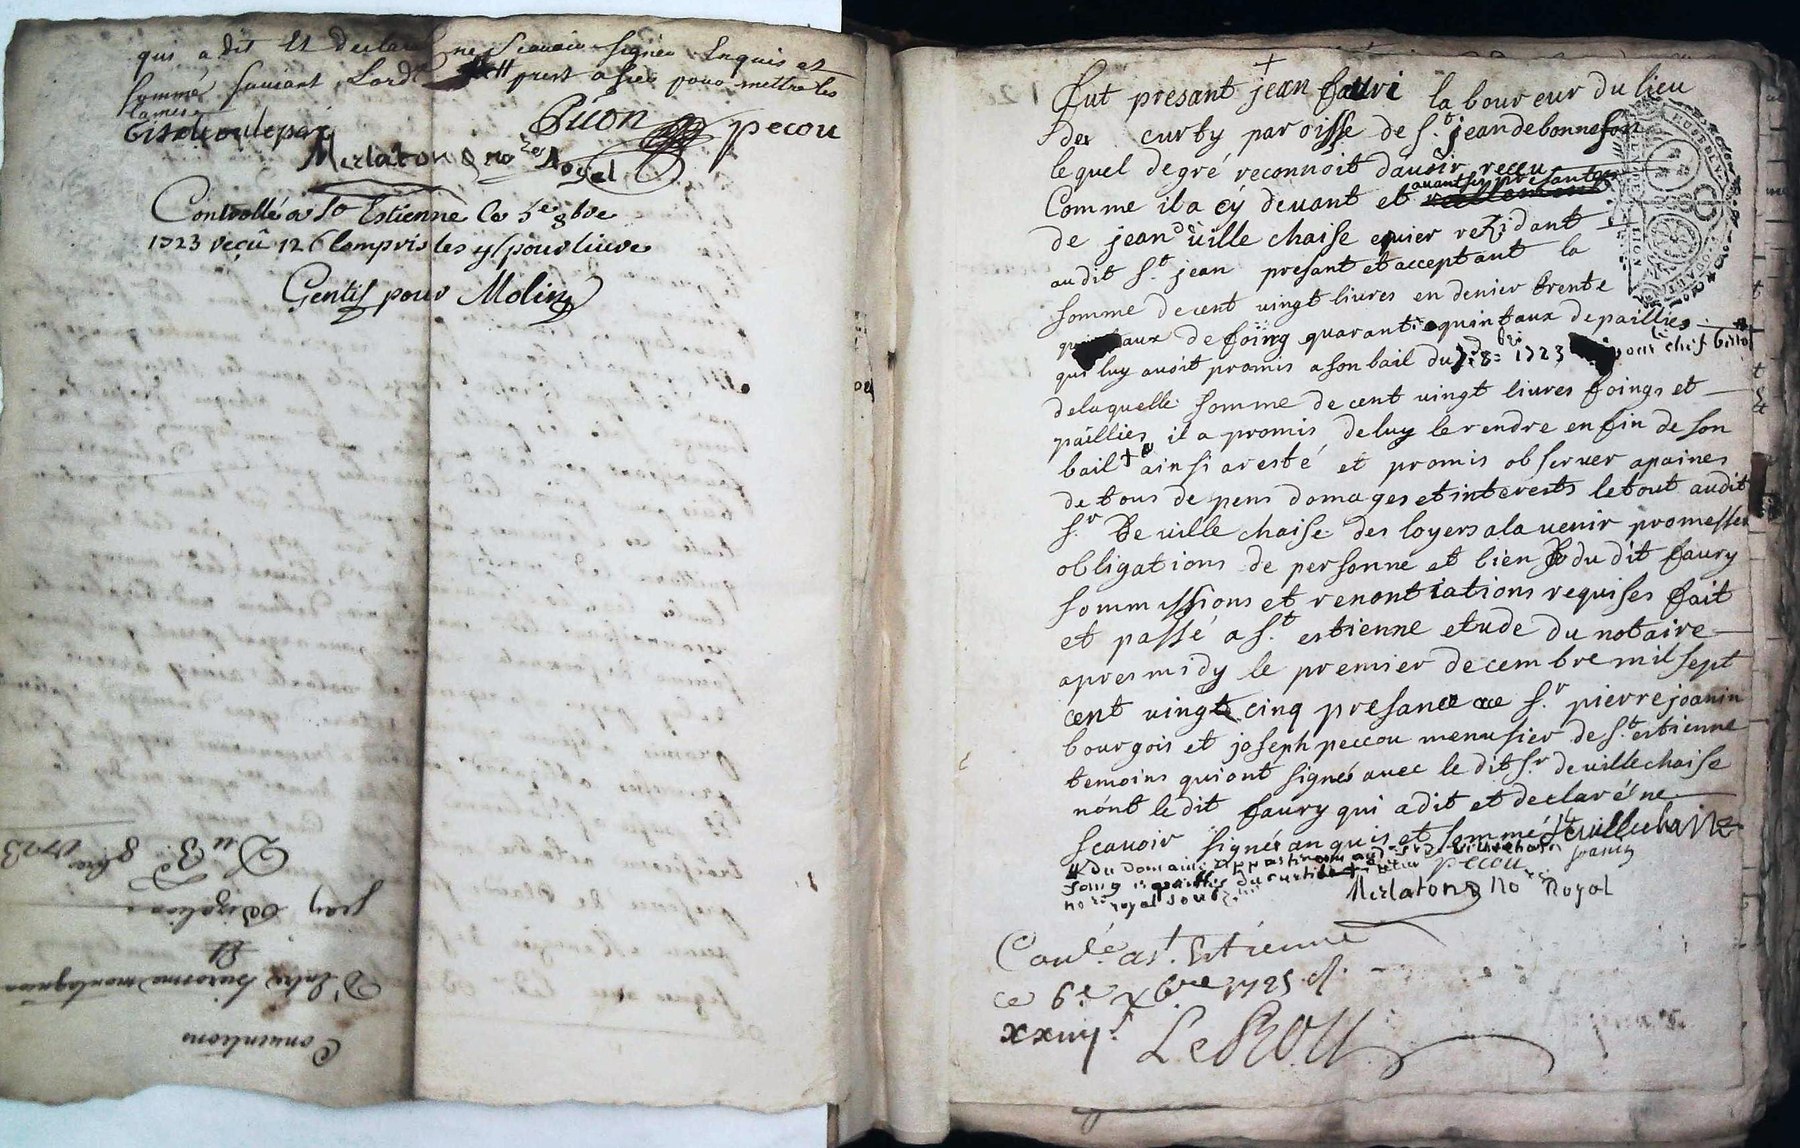 qui a dit et declaré ne scavoir signer Enquis et
sommé suivant Lord prest a free pour mettre les
lames
Buon pecou
Merlaton no re Royal
Controllé a St Estienne Ce 5e 8bre
1723 reçû 12 s Compris les 4 s pour livre
Gentil pour Molin
Conventions
D'Entre
Et
Jean
Du 3e 8bre
1723
fut presant jean fauri la boureur du lieu
de curby paroisse de St. jean de bonnefon
lequel de gré reconnoit davoir reçeu
avant ses presantes
Comme il a cy devant et
de jean d ville chaise equier rezidant
audit St. jean presant et acceptant la
somme de cent vingt livres en denier trente
quintaux de foing quarante quintaux de paillies
qui luy avoit promis a son bail du 7. 8bre 1723
de laquelle somme de cent vingt livres foings et
paillies il a promis de luy le rendre en fin de son
bail + ainsi aresté et promis observer apaines
de tous depens domages et interests le tout audit
Sr De ville chaise des loyers a la venir promesses
obligations de personne et bien du dit faury
sommissions et renontiations requises fait
et passé a St. estienne etude du notaire
apres midy le premier decembre mil sept
cent vingt cinq presance de Sr. pierre joanin
bourgois et joseph peccou menusier de St. estienne
temoins qui ont signés avec le dit Sr. de ville chaise
nont le dit faury qui a dit et declaré ne
scavoir signer anquis et sommé De villechaize
# du domaine appartenant aud. sr de villechaise pecou joanin
no re royal sous Merlaton no re Royal
Conlé a St. Estienne
ce 6e xbre 1725 r
xxiiij s. LeRoy